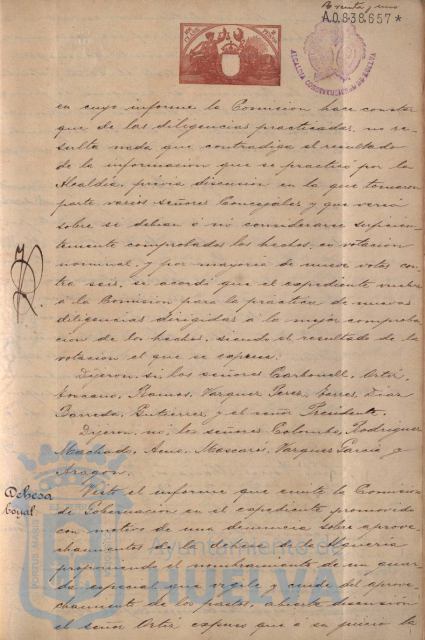 A.0.838.657*
ALCALDIA CONSTITUCIONAL DE HUELVA
en cuyo informe la Comision hace constar
que de las diligencias practicadas, no re-
sulta nada que contradiga el resultado
de la informacion que se practicó por la
Alcaldia, previa discusion en la que tomaron
parte varios señores Concejales y que versó
sobre si debian ó no considerarse suficien-
temente comprobados los hechos, en votacion
nominal, y por mayoria de nueve votos con-
tra seis, se acordó que el expediente vuelva
á la Comision para la práctica de nuevas
diligencias dirigidas á la mejor comproba-
cion de los hechos, siendo el resultado de la
votacion el que se expresa.
Dijeron si, los señores Carbonell, Ortiz,
Ramos, Vazquez Perez, Torres, Diaz
Barreda, Gutierrez, y el señor Presidente.
Dijeron, no, los señores Colombo, Rodriguez
Machado, Mascaros, Vazquez Garcia y
Aragon.
Dehesa
boyal.
Visto el informe que emite la Comision
de Gobernacion en el expediente promovido
con motivo de una denuncia sobre aprove-
chamientos de la dehesa de la Alqueria
proponiendo el nombramiento de un guar-
da especial que vigile y cuide del aprove-
chamiento de los pastos, abierta discusion
el señor Ortiz expuso que á su juicio la
Ayuntamiento de
HUELVA